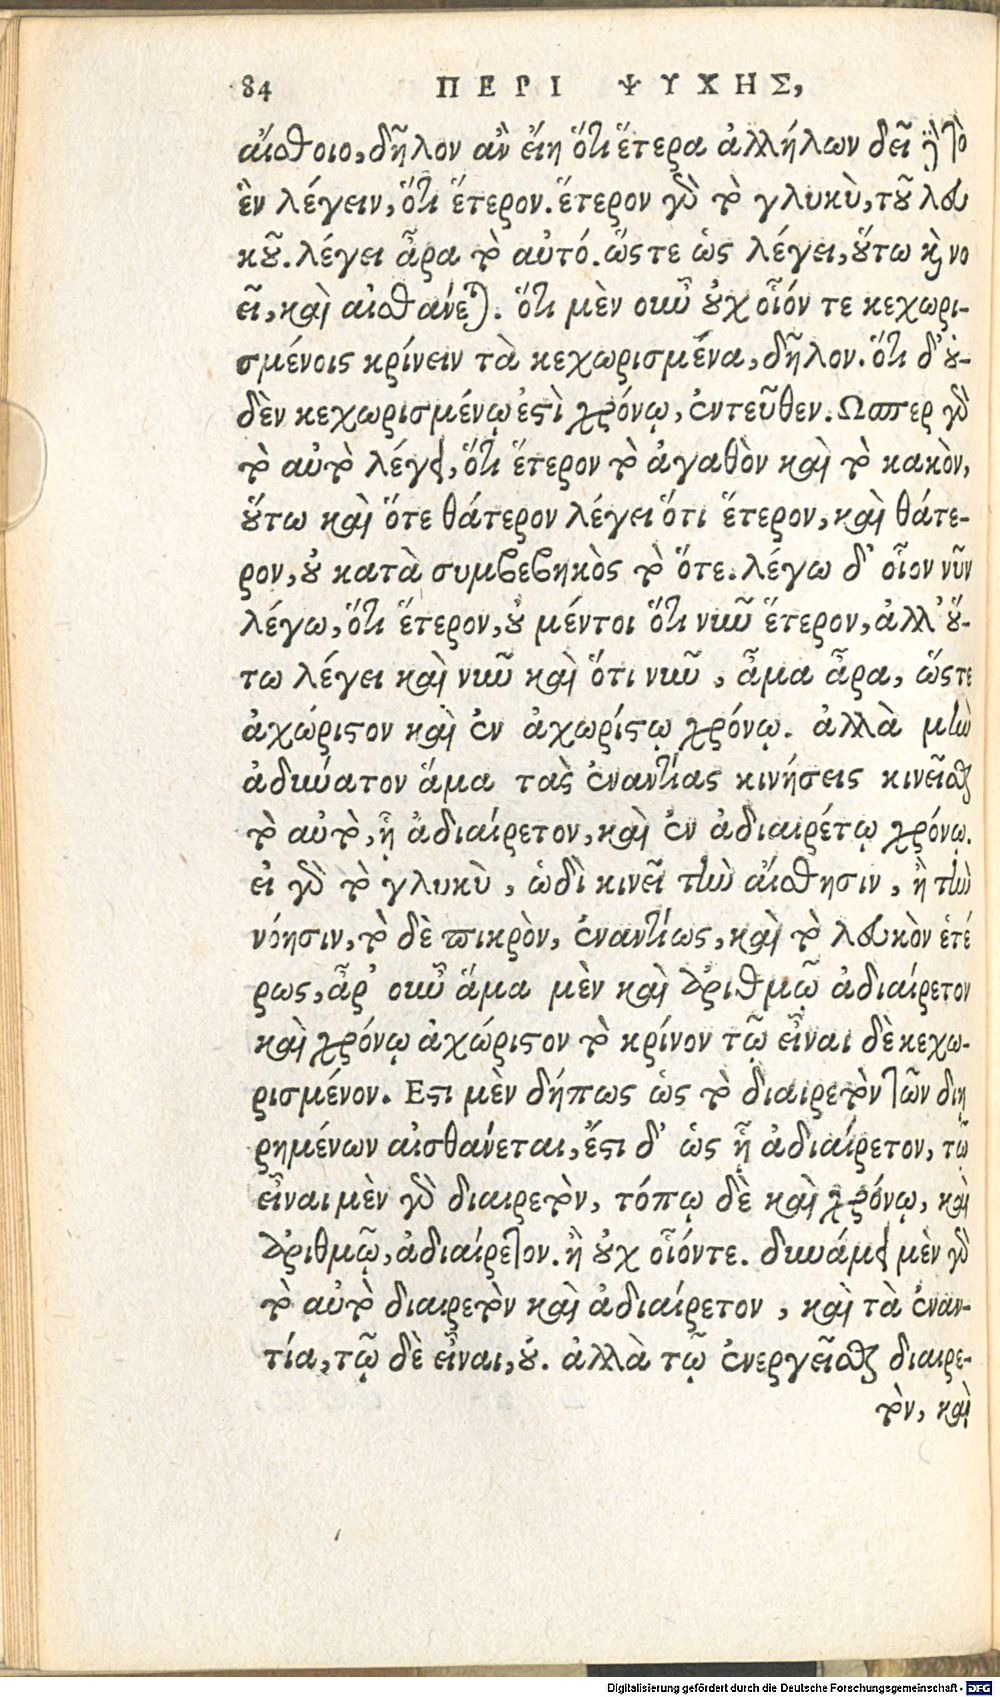 84 ΠΕΡΙ ΨΥΧΗΣ,
αἴσθοιο, δῆλον ἂν εἴη ὅτι ἕτερα ἀλλήλων δεῖ γὰρ τὸ
ἓν λέγειν, ὅτι ἕτερον. ἕτερον γὰρ τὸ γλυκὺ, τοῦ λευ
κοῦ. λέγει ἄρα τὸ αὐτό. ὥστε ὡς λέγει, οὕτω καὶ νο
εῖ, καὶ αἰσθάνεται. ὅτι μὲν οὖν οὐχ οἷόν τε κεχωρι-
σμένοις κρίνειν τὰ κεχωρισμένα, δῆλον. ὅτι δ' οὐ-
δὲν κεχωρισμένῳ ἐστὶ χρόνῳ, ἐντεῦθεν. Ωσπερ γὰρ
τὸ αὐτὸ λέγει, ὅτι ἕτερον τὸ ἀγαθὸν καὶ τὸ κακὸν,
οὕτω καὶ ὅτε θάτερον λέγει ὅτι ἕτερον, καὶ θάτε-
ρον, οὐ κατὰ συμβεβηκὸς τὸ ὅτε. λέγω δ' οἷον νῦν
λέγω, ὅτι ἕτερον, οὐ μέντοι ὅτι νῦν ἕτερον, ἀλλ' οὕ-
τω λέγει καὶ νῦν καὶ ὅτι νῦν, ἅμα ἄρα, ὥστε
ἀχώριστον καὶ ἐν ἀχωρίστῳ χρόνῳ. ἀλλὰ μὴν
ἀδύνατον ἅμα τὰς ἐναντίας κινήσεις κινεῖσθαι
τὸ αὐτὸ, ᾗ ἀδιαίρετον, καὶ ἐν ἀδιαιρέτῳ χρόνῳ.
εἰ γὰρ τὸ γλυκὺ, ὡδὶ κινεῖ τὴν αἴσθησιν, ἢ τὴν
νόησιν, τὸ δὲ πικρὸν, ἐναντίως, καὶ τὸ λευκὸν ἑτέ
ρως, ἆρ' οὖν ἅμα μὲν καὶ ἀριθμῷ ἀδιαίρετον
καὶ χρόνῳ ἀχώριστον τὸ κρίνον τῷ εἶναι δὲ κεχω-
ρισμένον. Εστι μὲν δήπως ὡς τὸ διαιρετὸν τῶν διῃ
ρημένων αἰσθάνεται, ἔστι δ' ὡς ᾗ ἀδιαίρετον, τῷ
εἶναι μὲν γὰρ διαιρετὸν, τόπῳ δὲ καὶ χρόνῳ, καὶ
ἀριθμῷ, ἀδιαίρετον. ἢ οὐχ οἷόντε. δυνάμει μὲν γὰρ
τὸ αὐτὸ διαιρετὸν καὶ ἀδιαίρετον, καὶ τὰ ἐναν-
τία, τῷ δὲ εἶναι, οὔ. ἀλλὰ τῷ ἐνεργεῖσθαι διαιρε-
τὸν, καὶ
Digitalisierung gefördert durch die Deutsche Forschungsgemeinschaft - DFG